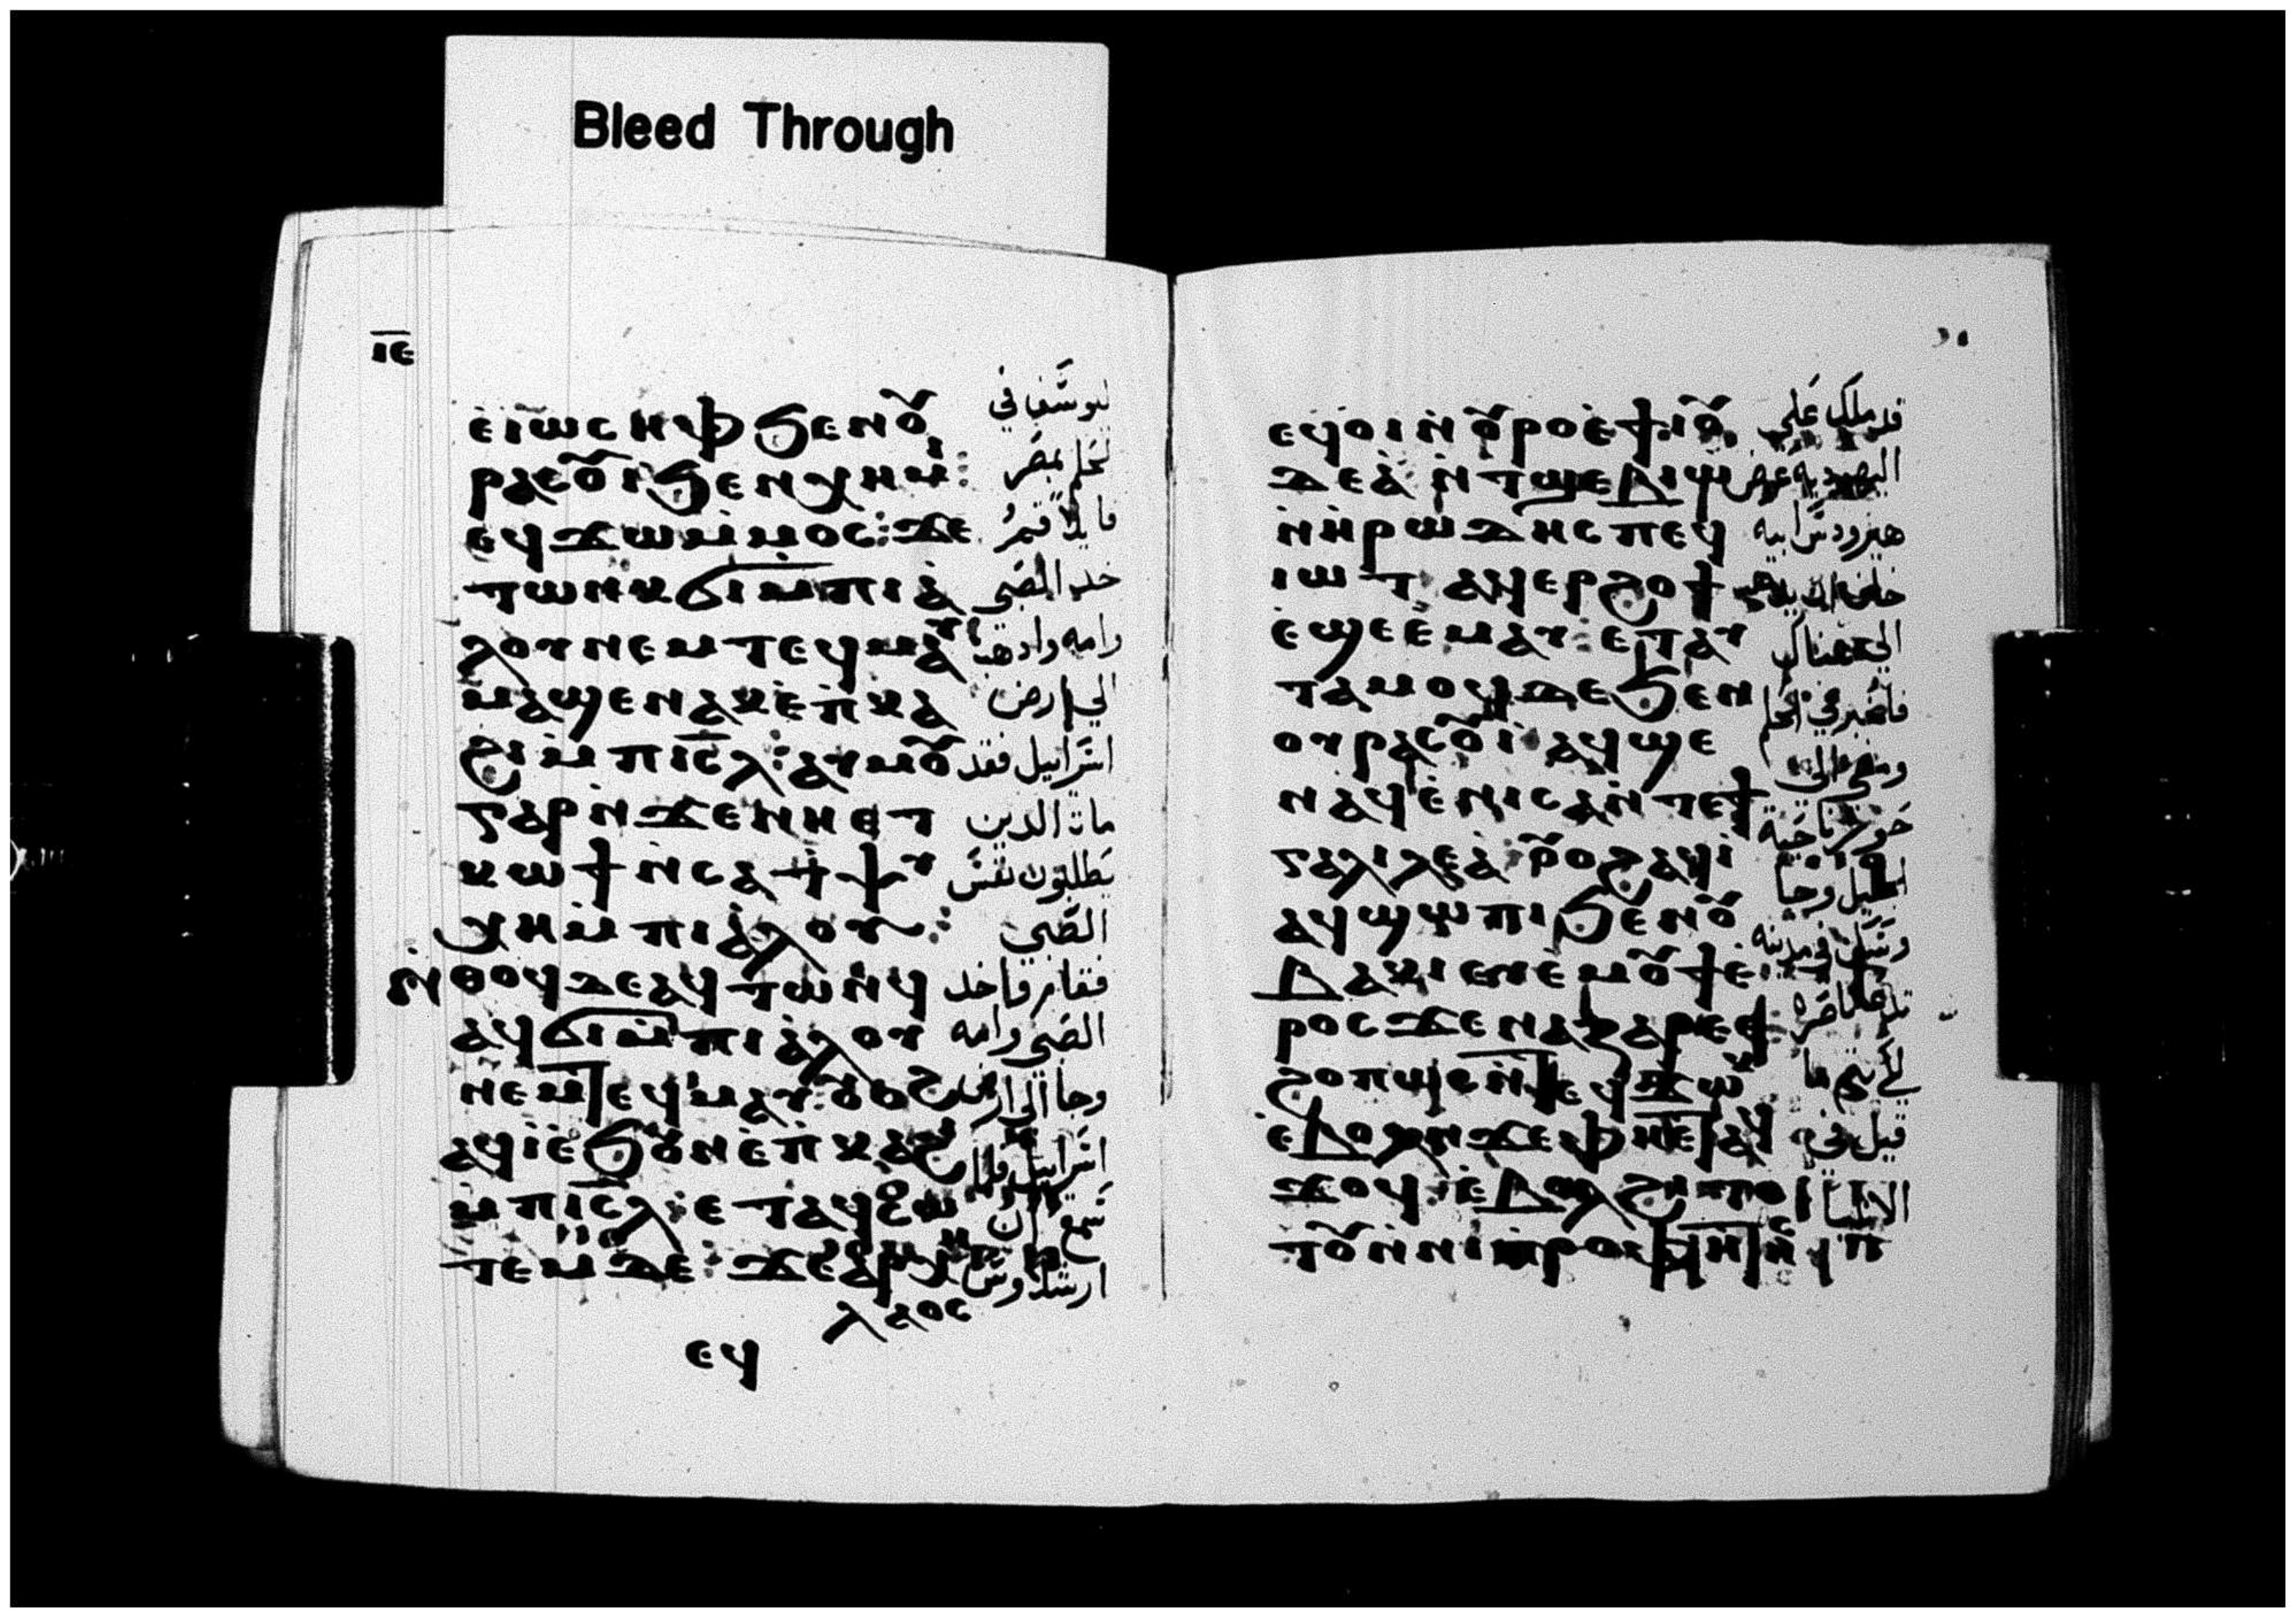 Bleed Through
ⲓ̅ⲉ̅
ⲉ̀ⲓⲱⲥⲏⲫ ϧⲉⲛⲟⲩ
ⲣⲁⲥⲟⲩⲓ ϧⲉⲛⲭⲏⲙⲓ:
ⲉϥϫⲱⲙ̀ⲙⲟⲥ: ϫⲉ
ⲧⲱⲛⲕ ϭⲓⲙ̀ⲡⲓⲁ̀
ⲗⲟⲩ ⲛⲉⲙ ⲧⲉϥⲙⲁⲩ
ⲙⲁϣⲉⲛⲁⲕ ⲉ̀ⲡ̀ⲕⲁ
ϩⲓ ⲙ̀ⲡⲓⲥ̅ⲗ̅: ⲁⲩⲙⲟⲩ
ⲅⲁⲣ ⲛ̀ϫⲉⲛⲏⲉⲧ
ⲕⲱϯ ⲛ̀ⲥⲁ ϯⲯⲩ
ⲭⲏ ⲙ̀ⲡⲓⲁ̀ⲗⲟⲩ:
ⲛ̀ⲑⲟϥ ⲇⲉ ⲁϥⲧⲱⲛϥ
ⲁϥϭⲓ ⲙ̀ⲡⲓⲁ̀ⲗⲟⲩ
ⲛⲉⲙ ⲧⲉϥⲙⲁⲩ: ⲟⲩⲟϩ
ⲁϥⲓ̀ ⲉ̀ϧⲟⲩⲛ ⲉ̀ⲡ̀ⲕⲁϩⲓ
ⲙ̀ⲡⲓⲥ̅ⲗ̅: ⲉⲧⲁϥⲥⲱ
ⲧⲉⲙ ⲇⲉ: ϫⲉ ⲁⲣⲭⲏ
ⲗⲁⲟⲥ
ⲉϥ
ليوسف في
الحلم بمصر
قايلا قم
خد الصبي
وامه واذهب
الي ارض
اسرائيل فقد
مات الدين
يطلبون نفس
الصبي
فقام فاخد
الصبي وامه
وجا الي ارض
اسرائيل فلما
سمع ان
ارشلاوس
ⲉϥⲟⲓ ⲛ̀ⲟⲩⲣⲟ ⲉ̀ϯⲓⲟⲩ
ⲇⲉⲁ̀ ⲛ̀ⲧϣⲉⲃⲓⲱ
ⲛ̀ⲏⲣⲱⲇⲏⲥ ⲡⲉϥ
ⲓⲱⲧ ⲁϥⲉⲣϩⲟϯ
ⲉ̀ϣⲉ ⲉ̀ⲙⲁⲩ: ⲉⲧⲁⲩ
ⲧⲁⲙⲟϥ ⲇⲉ ϧⲉⲛ
ⲟⲩⲣⲁⲥⲟⲩⲓ ⲁϥϣⲉ
ⲛⲁϥ ⲉ̀ⲛⲓⲥⲁ ⲛ̀ⲧⲉϯ
ⲅⲁⲗⲓⲗⲉⲁ̀ ⲟⲩⲟϩ ⲁϥⲓ̀
ⲁϥϣⲱⲡⲓ ϧⲉⲛⲟⲩ
ⲃⲁⲕⲓ ⲉⲩⲉ̀ⲙⲟⲩϯ ⲉ̀
ⲣⲟⲥ ϫⲉ ⲛⲁⲍⲁⲣⲉⲑ:
ϩⲟⲡⲱⲥ ⲛ̀ⲧⲉϥϫⲱⲕ
ⲉ̀ⲃⲟⲗ ⲛ̀ϫⲉ ⲫⲏⲉⲧⲁϥ
ϫⲟϥ ⲉ̀ⲃⲟⲗ ϩⲓⲧⲟ
ⲧⲟⲩ ⲛ̀ⲛⲓⲡⲣⲟⲫⲏⲧⲏⲥ
قد ملك علي
اليهوديه عوض
هيرودس ابيه
الي هناك
فاخبر في الحلم
ومضي الي
ناحية
الجليل وجا
وسكن في مدينه
تدعا ناصره
لكي يتم ما
قيل في
الانبيا